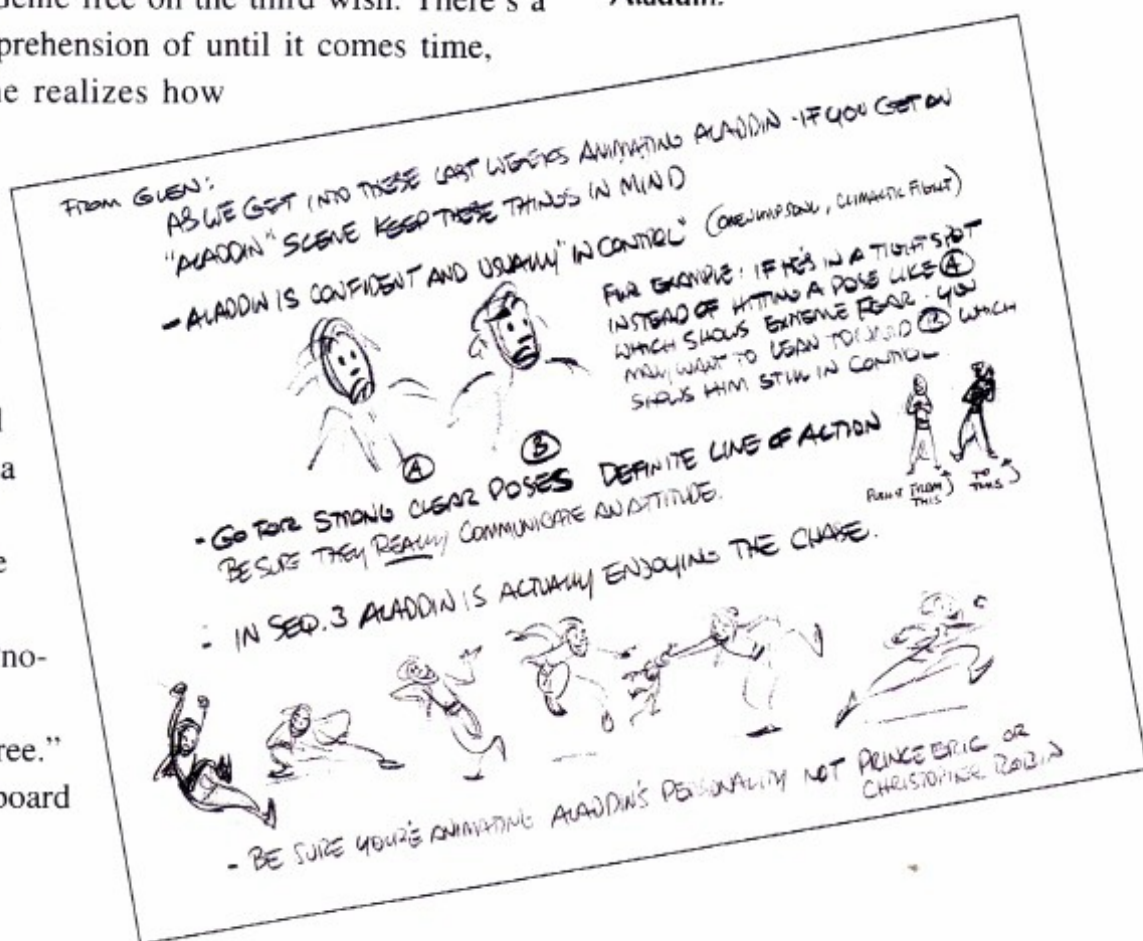 Genie free on the third wish. There's a
prehension of until it comes time,
he realizes how
Aladdin.
a
e
no-
ree."
board
FROM GLEN:
AS WE GET INTO THESE LAST WEEKS ANIMATING ALADDIN - IF YOU GET AN
"ALADDIN" SCENE KEEP THESE THINGS IN MIND
- ALADDIN IS CONFIDENT AND USUALLY "IN CONTROL" (ONE JUMP SONG, CLIMACTIC FIGHT)
FOR EXAMPLE: IF HE'S IN A TIGHT SPOT
INSTEAD OF HITTING A POSE LIKE A
WHICH SHOWS EXTREME FEAR - YOU
MAY WANT TO LEAN TOWARD B WHICH
SHOWS HIM STILL IN CONTROL
A
B
- GO FOR STRONG CLEAR POSES DEFINITE LINE OF ACTION
BE SURE THEY REALLY COMMUNICATE AN ATTITUDE.
FROM THIS
TO THIS
- IN SEQ. 3 ALADDIN IS ACTUALLY ENJOYING THE CHASE.
- BE SURE YOU'RE ANIMATING ALADDIN'S PERSONALITY NOT PRINCE ERIC OR
CHRISTOPHER ROBIN